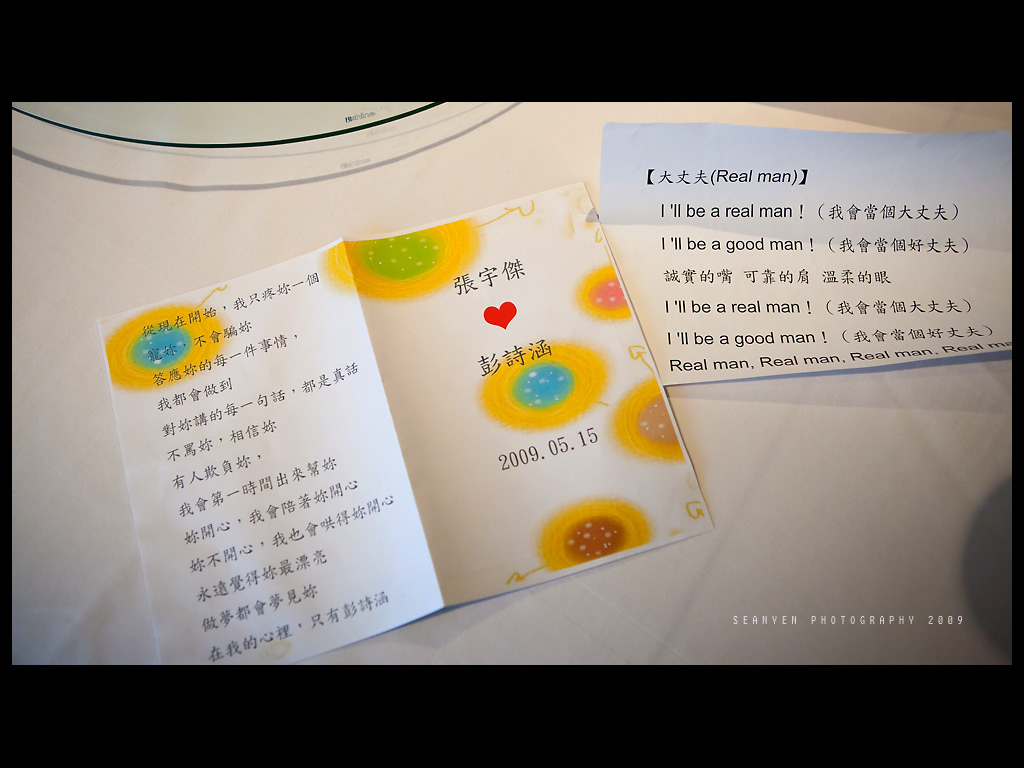 從現在開始，我只疼妳一個
寵妳，不會騙妳
答應妳的每一件事情，
我都會做到
對妳講的每一句話，都是真話
不罵妳，相信妳
有人欺負妳，
我會第一時間出來幫妳
妳開心，我會陪著妳開心
妳不開心，我也會哄得妳開心
永遠覺得妳最漂亮
做夢都會夢見妳
在我的心裡，只有彭詩涵
張宇傑
彭詩涵
2009.05.15
【大丈夫(Real man)】
I 'll be a real man！（我會當個大丈夫）
I 'll be a good man！（我會當個好丈夫）
誠實的嘴 可靠的肩 溫柔的眼
I 'll be a real man！（我會當個大丈夫）
I 'll be a good man！（我會當個好丈夫）
Real man, Real man, Real man, Real man
SEANYEN PHOTOGRAPHY 2009